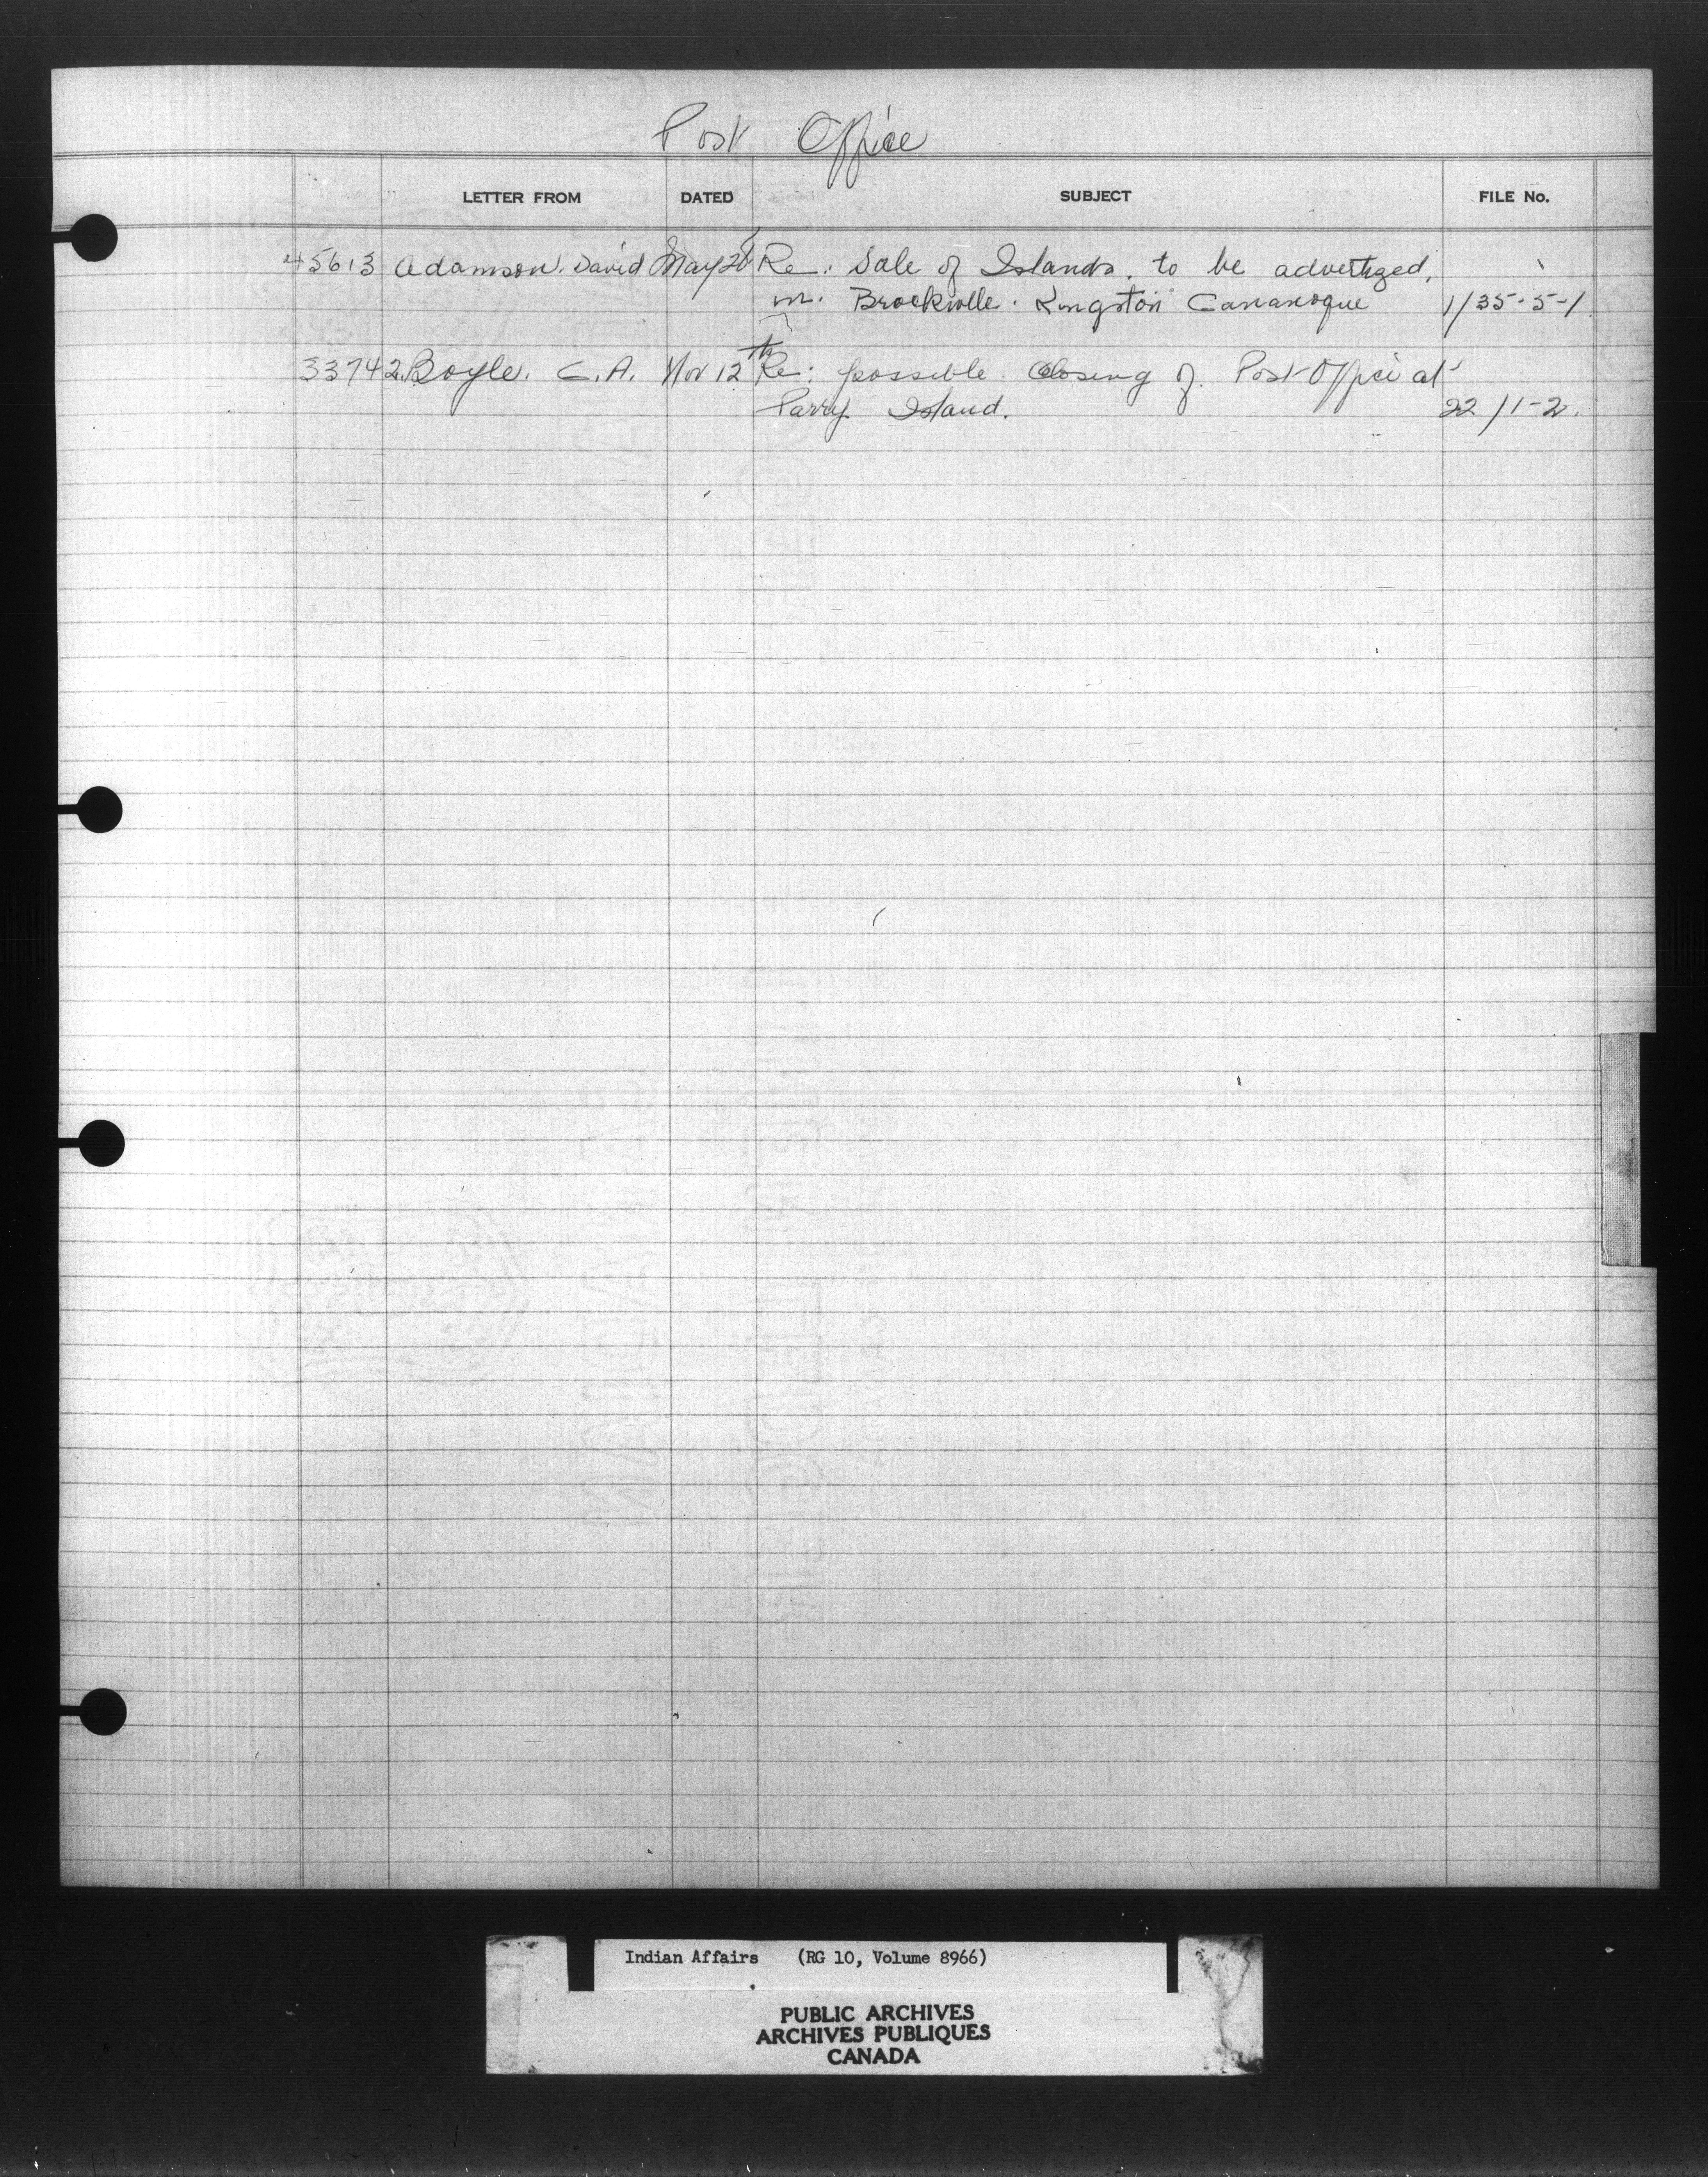 Post Office
LETTER FROM DATED SUBJECT FILE No.
45613 Adamson. David May 20 Re: Sale of Islands, to be advertized,
in. Brockville. Kingston Gananoque 1/35-5-1
33742 Boyle. C.A. Nov 12th Re: possible closing of Post Office at
Parry Island. 22/1-2.
Indian Affairs (RG 10, Volume 8966)
PUBLIC ARCHIVES
ARCHIVES PUBLIQUES
CANADA